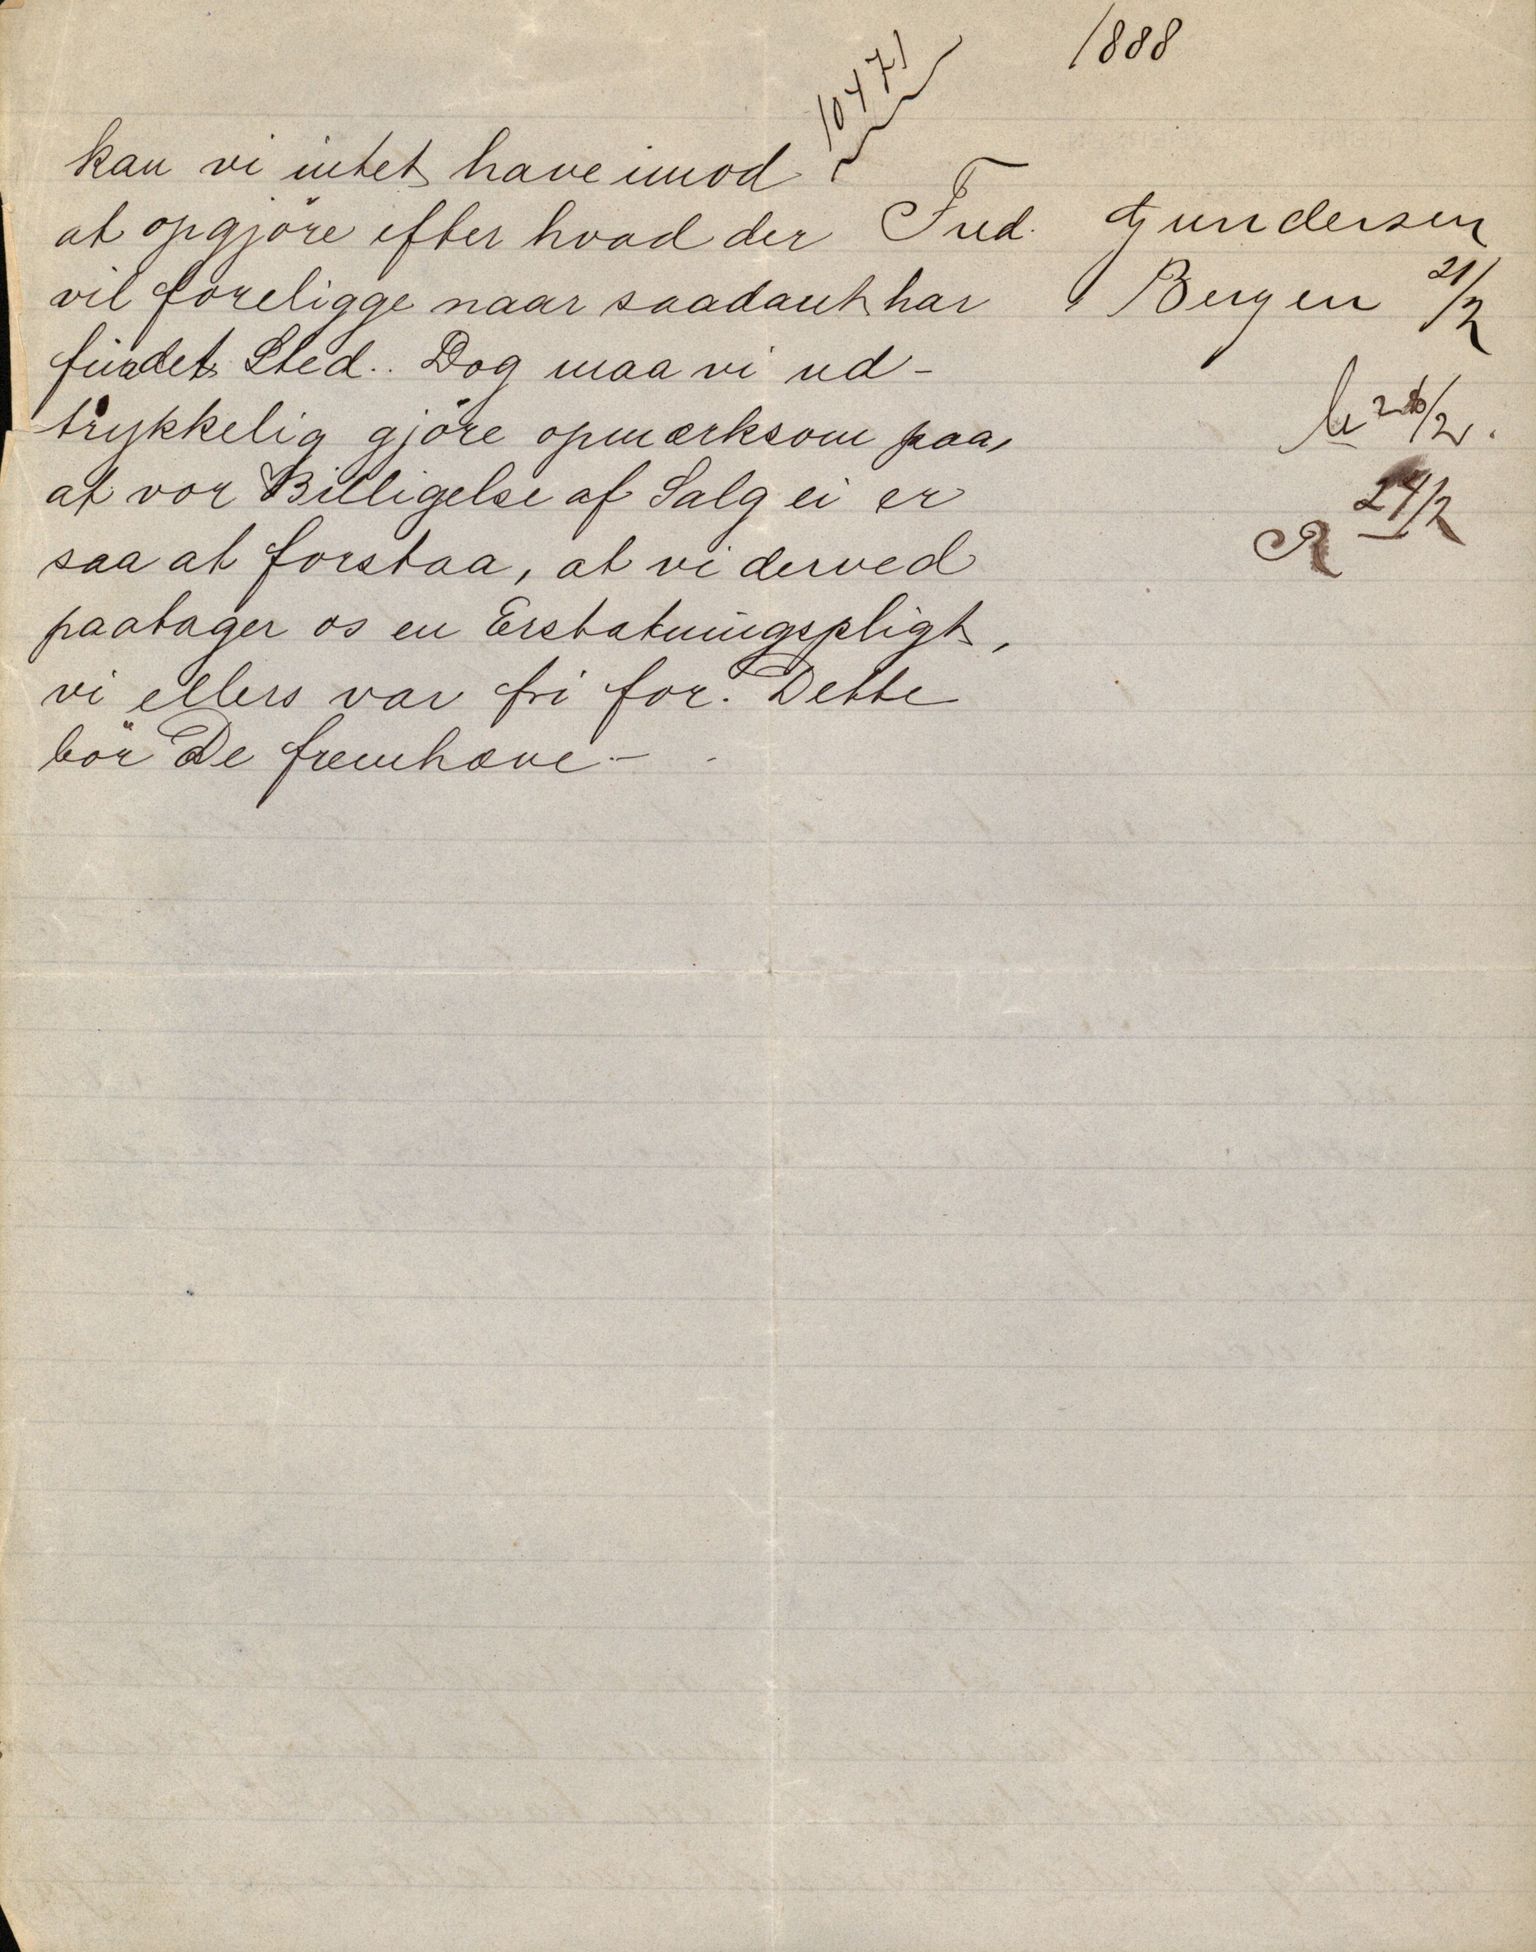 1888
10471
kan vi intet have imod
at opgjöre efter hvad der
vil foreligge naar saadant har
fundet Sted. Dog maa vi ud-
trykkelig gjöre opmærksom paa,
at vor Billigelse af Salg ei er
saa at forstaa, at vi derved
paatager os en Erstatningspligt,
vi ellers var fri for. Dette
bör De fremhæve –
Fred. Gundersen
Bergen 21/2
/2.
R 24/2